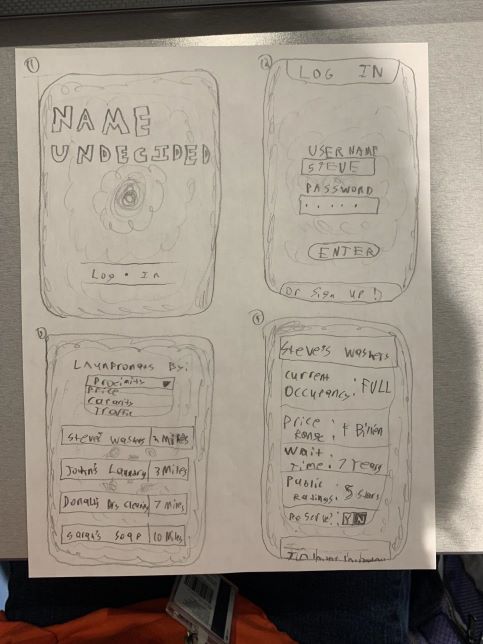 1
NAME
UNDECIDED
Log • In
2
LOG IN
USER NAME
STEVE
PASSWORD
.....
ENTER
Or Sign UP!
3
By:
Proximity
Price
Capacity
Traffic
Steve's Washers
Miles
John's Laundry
3 Miles
Donald's Dry Cleaning
7 Miles
Sarah's Soap
10 Miles
4
Steve's Washers
Current
Occupancy: FULL
Price
Range: 1 Billion
Wait
Time: 7 Years
Public
Ratings: 5 stars
Reserve?: Y N